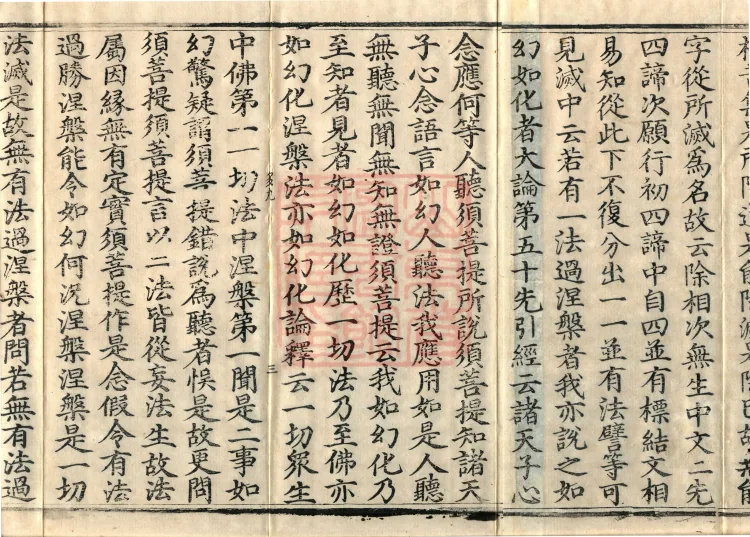 字從所滅為名故云除相次無生中文二先
四諦次願行初四諦中自四並有標結文相
易知從此下不復分出一一並有法譬等可
見滅中云若有一法過涅槃者我亦說之如
幻如化者大論第五十先引經云諸天子心
念應何等人聽須菩提所說須菩提知諸天
子心念語言如幻人聽法我應用如是人聽
無聽無聞無知無證須菩提云我如幻化乃
至知者見者如幻如化歷一切法乃至佛亦
如幻化涅槃法亦如幻化論釋云一切眾生
中佛第一一切法中涅槃第一聞是二事如
幻驚疑謂須菩提錯說為聽者悞是故更問
須菩提須菩提言以二法皆從妄法生故法
屬因緣無有定實須菩提作是念假令有法
過勝涅槃能令如幻何況涅槃涅槃是一切
法滅是故無有法過涅槃者問若無有法過
三